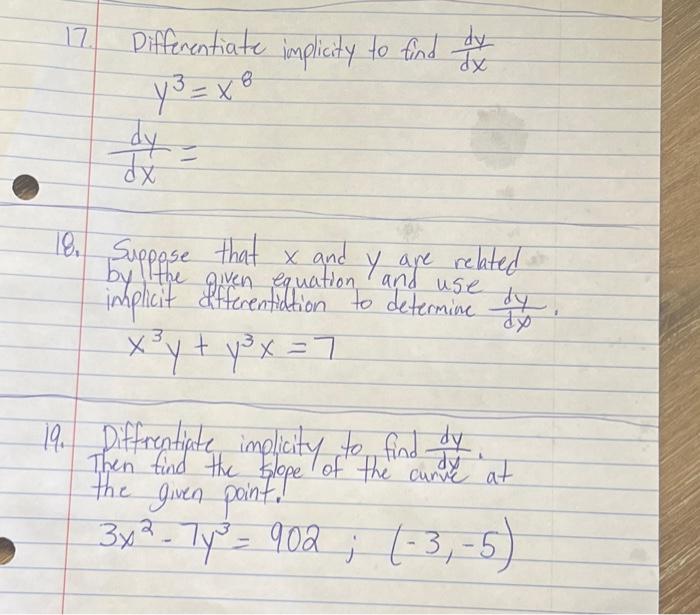 17. Differentiate implicity to find dy/dx
y³ = x⁸
dy/dx =
18. Suppose that x and y are related
by the given equation and use
implicit differentiation to determine dy/dx.
x³y + y³x = 7
19. Diffrentiate implicity to find dy/dx.
Then find the slope of the curve at
the given point.
3x² - 7y³ = 902 ; (-3, -5)